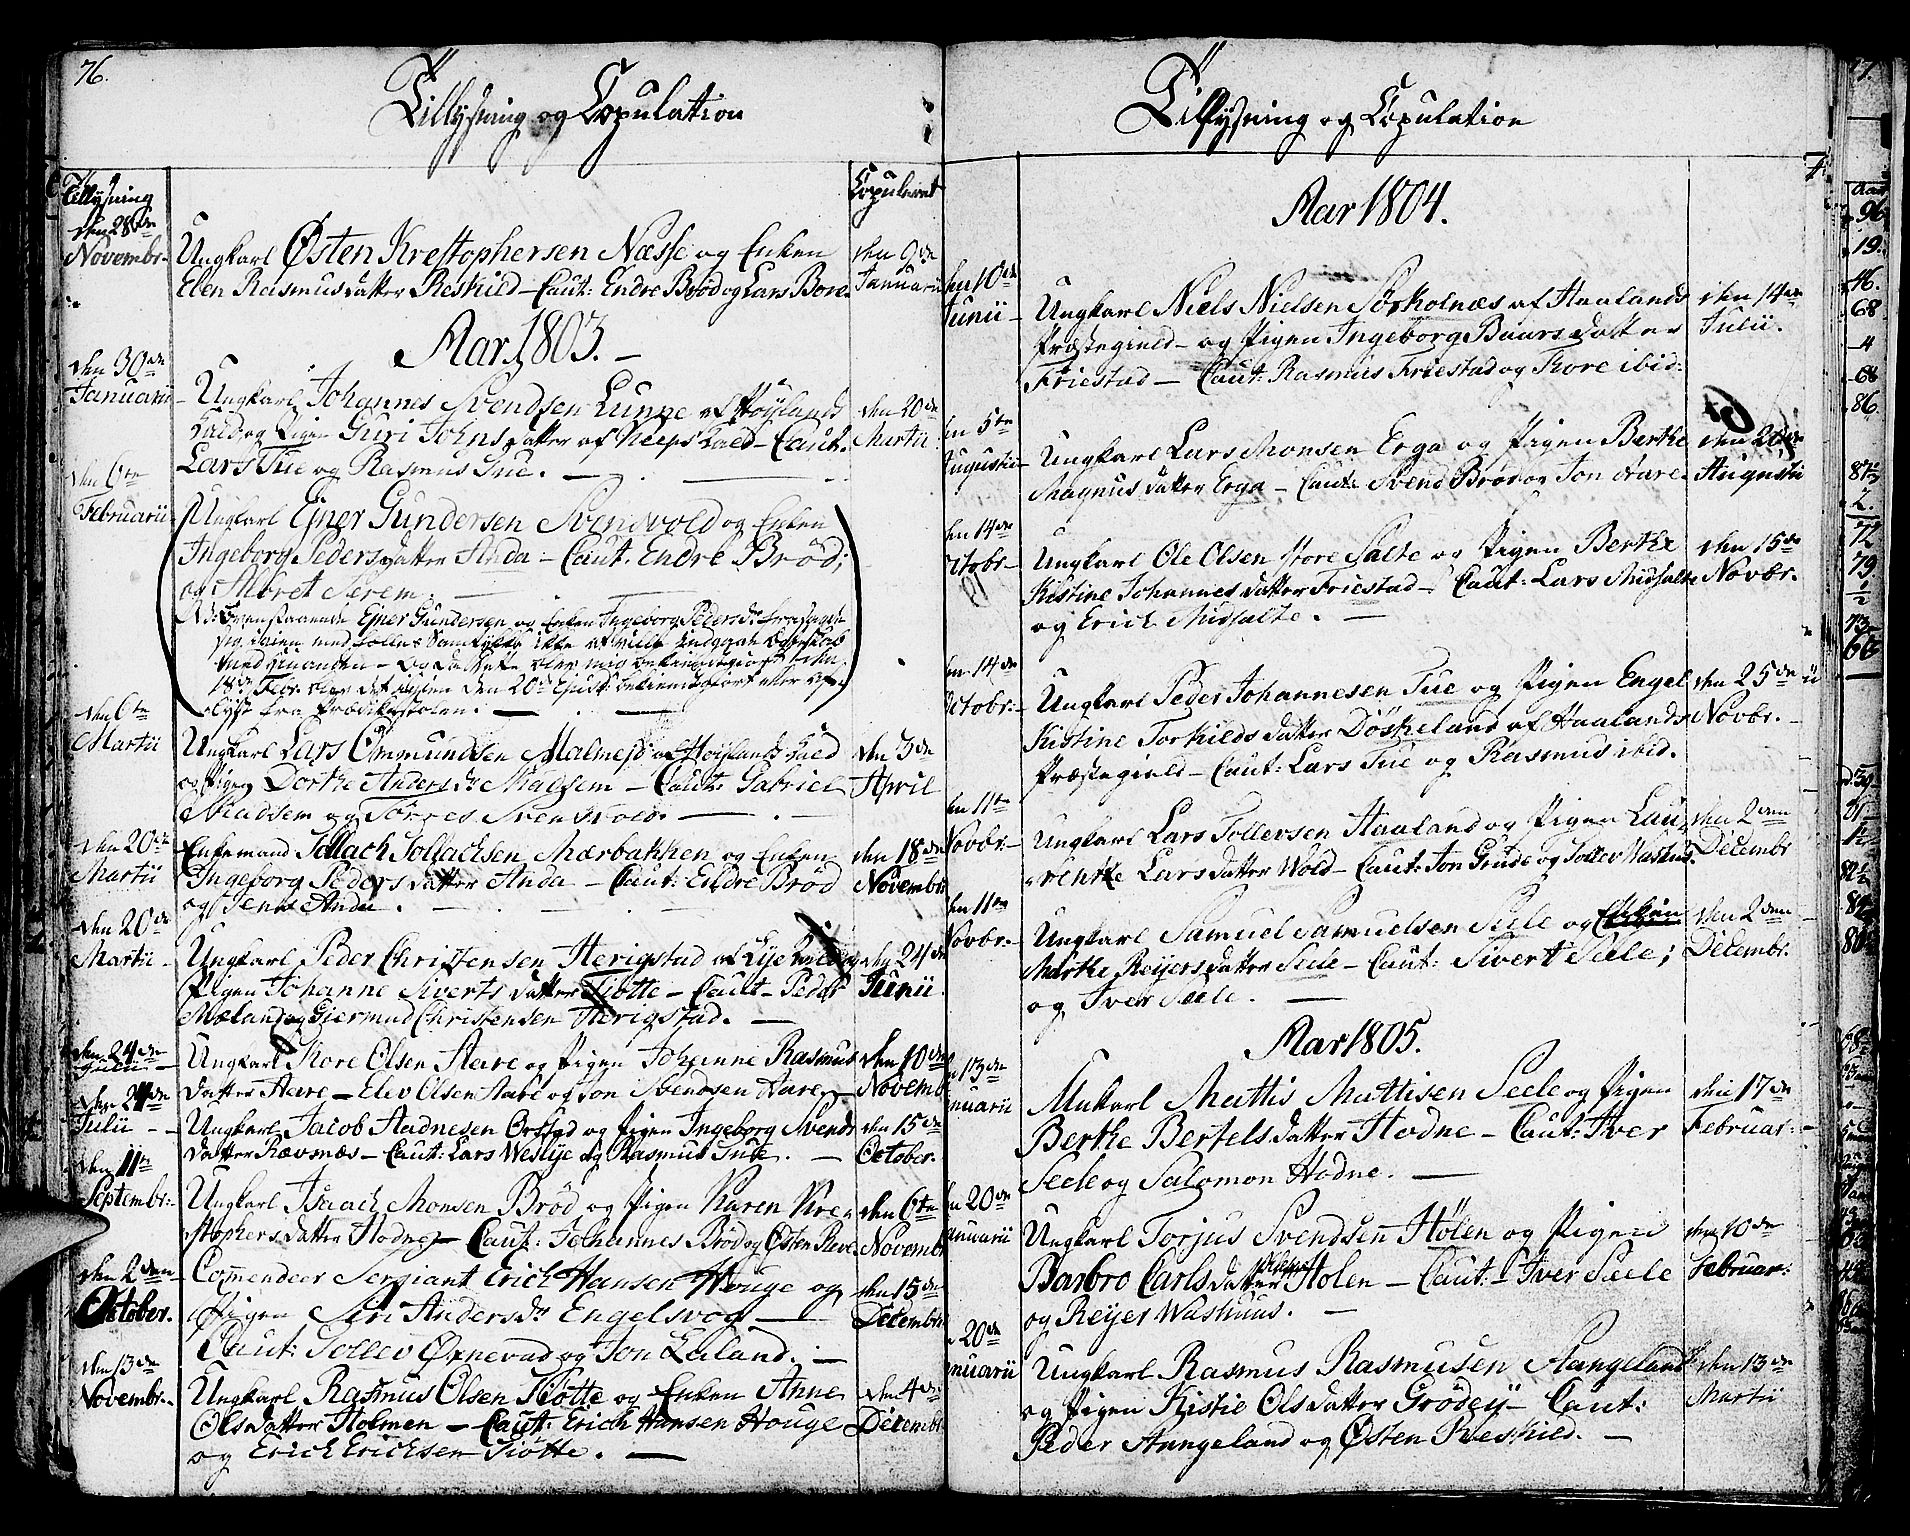 76.
Tillysning og Copulation
Tillysning
Copuleret
den 28de
Novembr.
Ungkarl Østen Krestophersen Næsse og Enken
Elen Rasmusdatter Reskild – Caut: Endre Brød og Lars Bore.
den 9de
Januarii
Aar 1803. –
den 30de
Januarii
Ungkarl Johannes Svendsen Lunne af Höylands
Giæld og Pigen Guri Johnsdatter af Kleps Giæld – Caut:
Lars Tue og Rasmus Tue. –
den 20de
Martii
den 6te
Februarii
Ungkarl Ejner Gundersen Svensvold og Enken
Ingeborg Pedersdatter Anda – Caut: Endre Brød;
og Moret Serem.
NB: Ovenstaaende Ejner Gundersen og Enken Ingeborg Pedersdr. fra
sig igien med Samtykke ikke at ville indgaae Ægteskab
med hinanden – Og da dette blev mig bekiendtgiort den
18de Febr. blev det igien den 20de Ejusd: bekiendtgiort eller
lyst fra Prædikestolen. –
den 6te
Martii
Ungkarl Lars Ommundsen Malmeim af Höylands Giæld
og Pigen Dorthe Andersdr. Madsem – Caut: Gabriel
Madsem og Törres Svensvold. –
den 3de
April
den 20de
Martii
Enkemand Tollach Tollachsen Mærbakken og Enken
Ingeborg Pedersdatter Anda – Caut: Endre Brød
og Jens Anda.
den 18de
Novembr.
den 20de
Martii –
Ungkarl Peder Christensen Herigstad af Lye og
Pigen Johanne Sivertsdatter Tiötte – Caut – Peder
Mæland og Giermud Christensen Herigstad. –
den 24de
Junii.
den 24de
Julii –
Ungkarl Tore Olsen Aare og Pigen Johanne Rasmus
datter Aare – Elev Olsen Aare og Jon Svendsen Aare –
den 10de
Novemb
den 24de
Julii –
Ungkarl Jacob Aadnesen Orstad og Pigen Ingeborg Svends
datter Rævnæs – Caut: Lars Weslye og Rasmus Tue. –
den 15de
October.
den 11te
Septembr:
Ungkarl Isaach Monsen Brød og Pigen Karen Kre-
stophersdatter Hodne – Caut: Johannes Brød og Østen Reve
den 6te
Novemb
den 2den
October.
Commendeer Sergiant Erich Hansen Houge og
Pigen Siri Andersdr. Engelsvog –
Caut: Tollev Ørnevad og Jon Eeland. –
den 15de
Decembr
den 13de
Novembr.
Ungkarl Rasmus Olsen Tiötte og Enken Anne
Olsdatter Holmen – Caut: Erich Hansen Houge
og Erich Erichsen Tiötte. –
den 4de
Decembr
Tillysning og Copulation
Aar 1804.
den 10de
Junii –
Ungkarl Niels Nielsen Sörkolnæs af Haalands
Præstegield – og Pigen Ingeborg Baarsdatter
Friestad – Caut: Rasmus Friestad og Tore ibid:
den 14de
Julii.
den 5te
Augustii –
Ungkarl Lars Monsen Erga og Pigen Berthe
Magnusdatter Erga – Caut: Svend Brød og Jon Aare –
den 26de
Augusti
den 14de
Octobr –
Ungkarl Ole Olsen Store Salte og Pigen Berthe
Kistine Johannesdatter Friestad – Caut: Lars Midsalte
og Erich Midsalte. –
den 15de
Novbr.
den 14de
Octobr: –
Ungkarl Peder Johannesen Tue og Pigen Engel
Kistine Torkildsdatter Döskeland af Haalands
Præstegield – Caut: Lars Tue og Rasmus ibid.
den 25de
Novbr. –
den 11te
Novbr. –
Ungkarl Lars Tollevsen Haaland og Pigen Lau
renthe Larsdatter Wold – Caut: Jon Grude og Tollev Washus.
den 2den
Decembr
den 11te
Novbr. –
Ungkarl Samuel Samuelsen Seele og Enken
Marthe Reyersdatter Seele – Caut: Sivert Seele;
og Iver Seele. –
den 2den
Decembr.
Aar 1805.
13de
nuarii
Unkarl Mattis Mattisen Seele og Pigen
Berthe Bertelsdatter Hodne – Caut: Iver
Seele og Salomon Hodne. –
den 17de
Februar: –
20de
nuarii
Ungkarl Torjus Svendsen Hölen og Pigen
Barbro Carlsdatter Holen – Caut: Iver Seele
og Reyer Washuus. –
den 10de
Februar:
20de
nuarii
Ungkarl Rasmus Rasmusen Aangeland
og Pigen Kistie Olsdatter Grödey – Caut:
Peder Aangeland og Østen Reeskild. –
den 13de
Martii